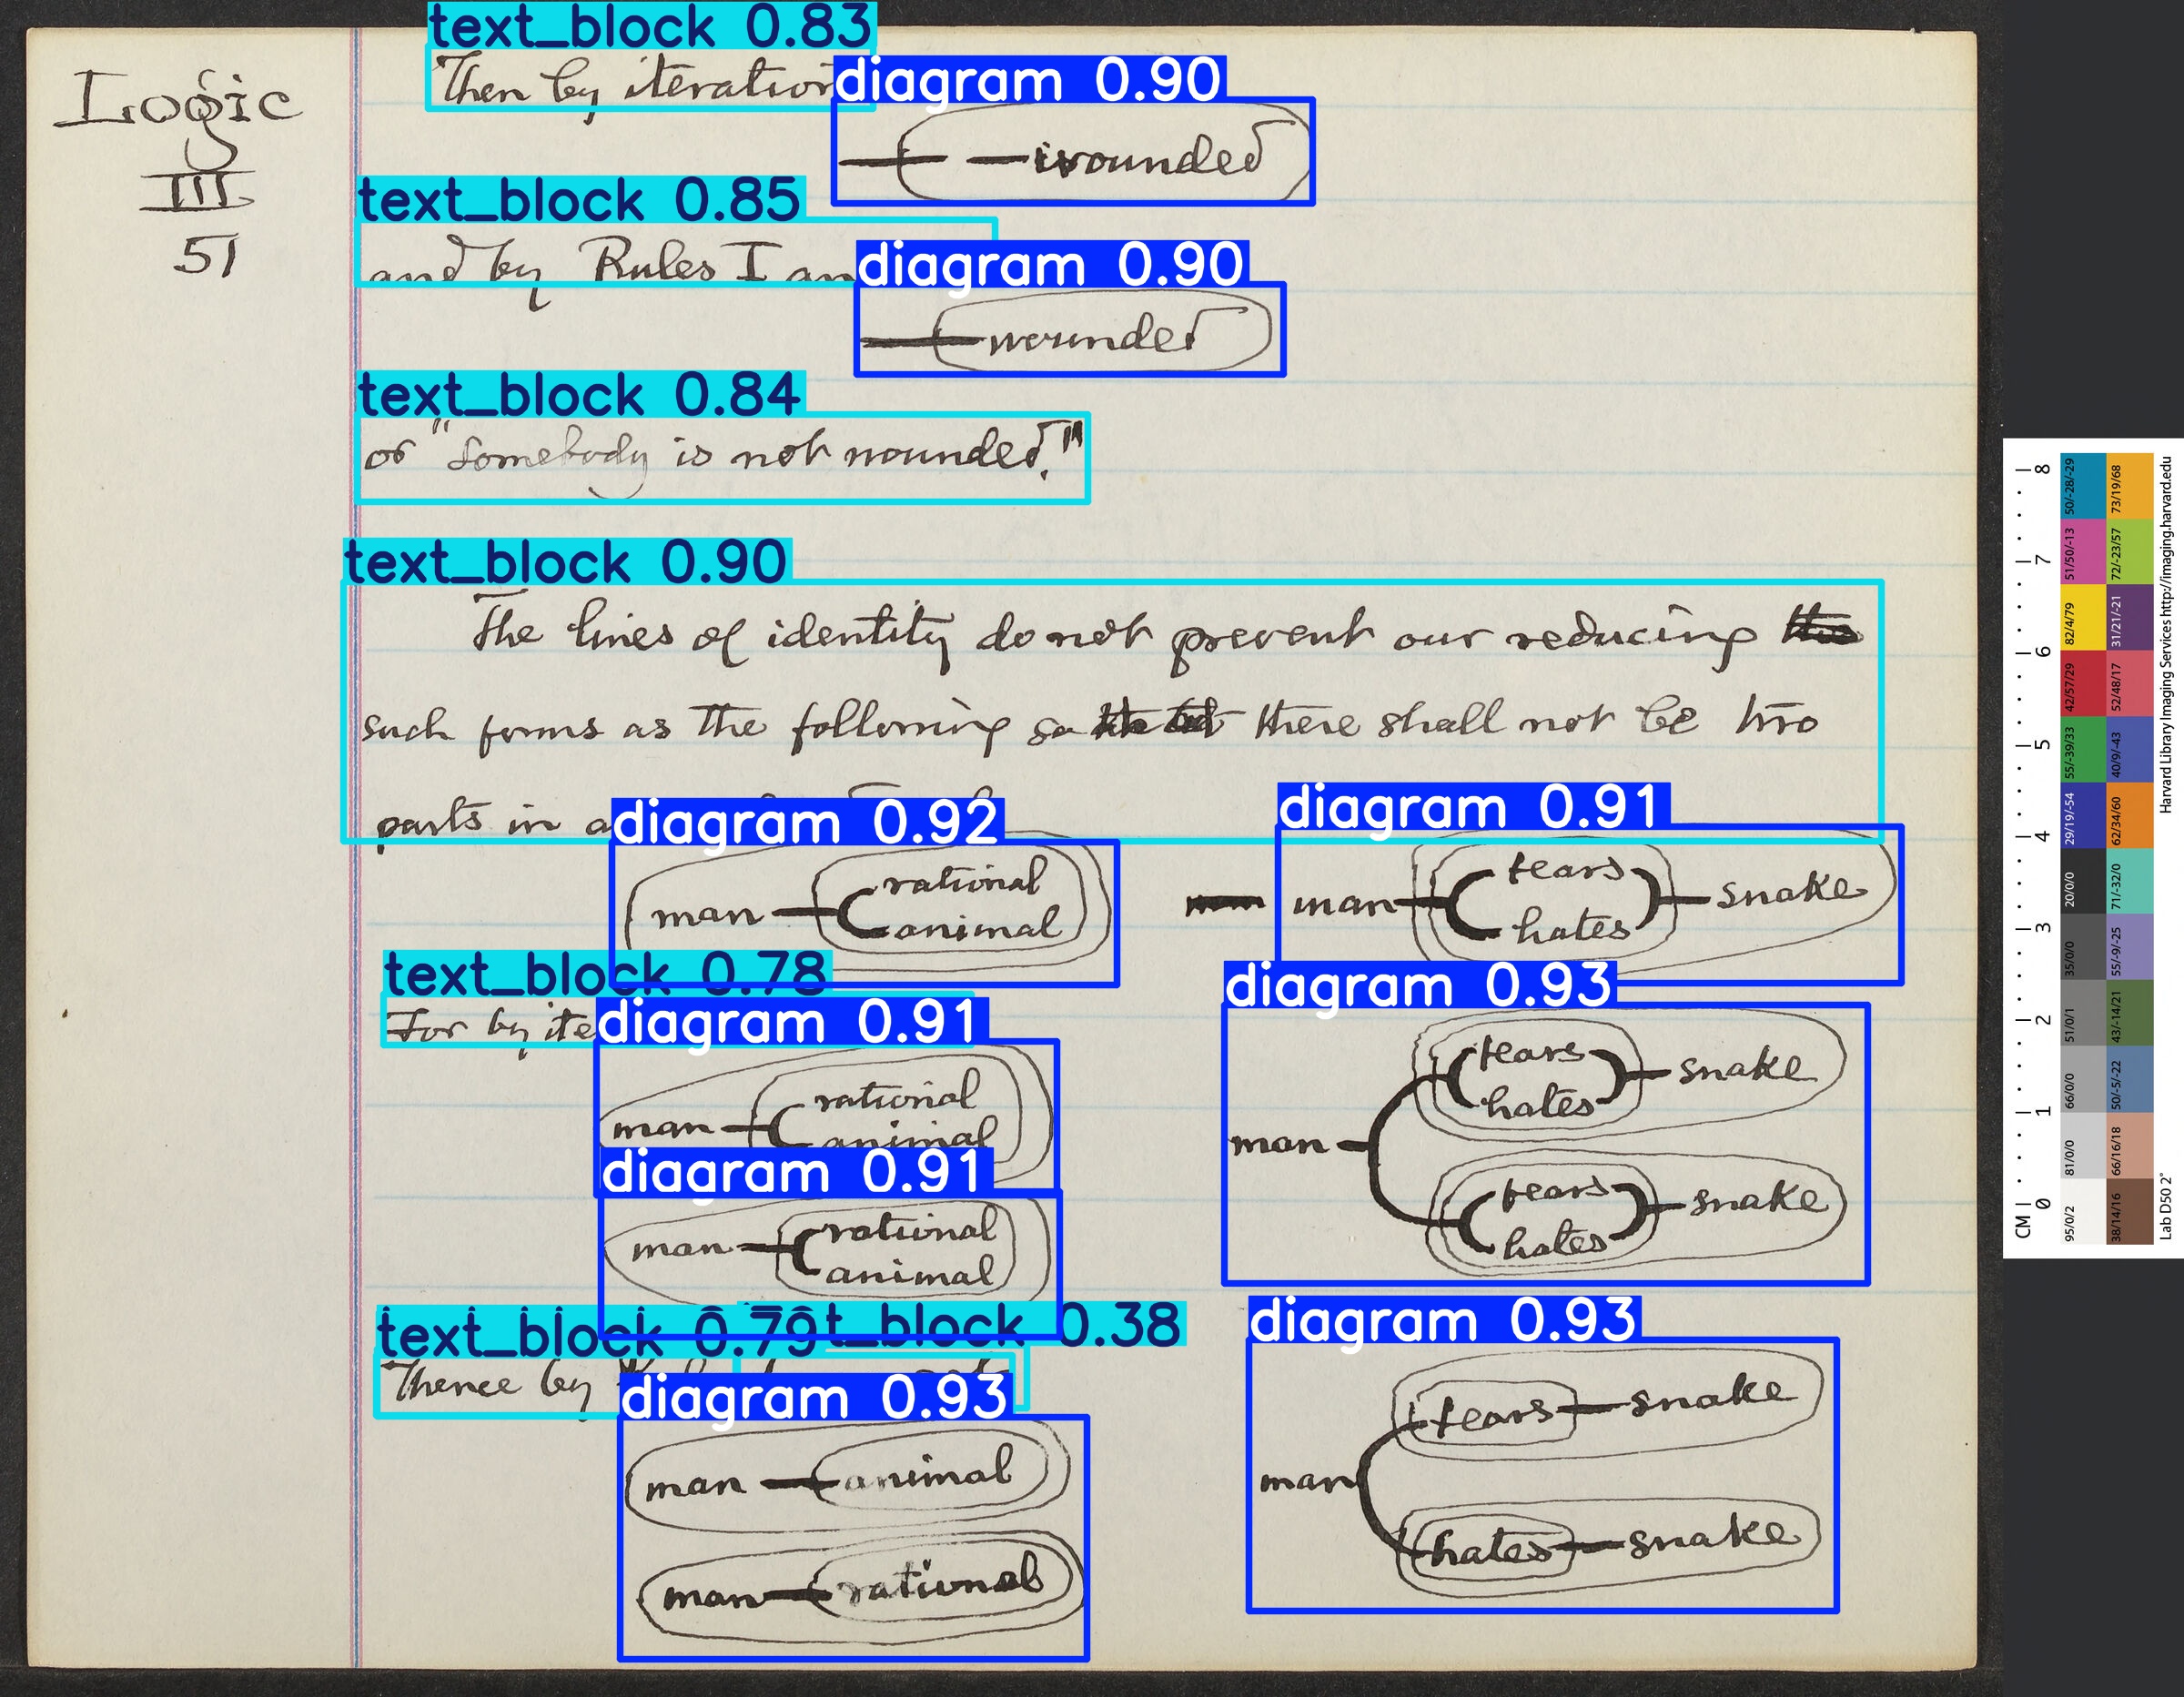 Logic
III
51
text_block 0.83
Then by iteration
diagram 0.90
wounded
text_block 0.85
and by Rules I an
diagram 0.90
wounded
text_block 0.84
or "Somebody is not wounded."
text_block 0.90
The lines of identity do not prevent our reducing
such forms as the following so there shall not be two
parts in a
diagram 0.92
man rational
animal
diagram 0.91
man tears snake
hates
text_block 0.78
For by ite
diagram 0.91
man rational
animal
diagram 0.91
man rational
animal
diagram 0.93
tears snake
hates
man
tears snake
hates
text_block 0.79
t_block 0.38
Thence by
diagram 0.93
man animal
man rational
diagram 0.93
tears snake
man
hates snake
CM 0 1 2 3 4 5 6 7 8
50/-28/-29
51/50/-13
82/4/79
42/57/29
55/-39/33
29/19/-54
20/0/0
35/0/0
51/0/1
66/0/0
81/0/0
95/0/2
73/19/68
72/-23/57
31/21/-21
52/48/17
40/9/-43
62/34/60
71/-32/0
55/-9/-25
43/-14/21
50/-5/-22
66/16/18
38/14/16
Harvard Library Imaging Services http://imaging.harvard.edu
Lab D50 2°